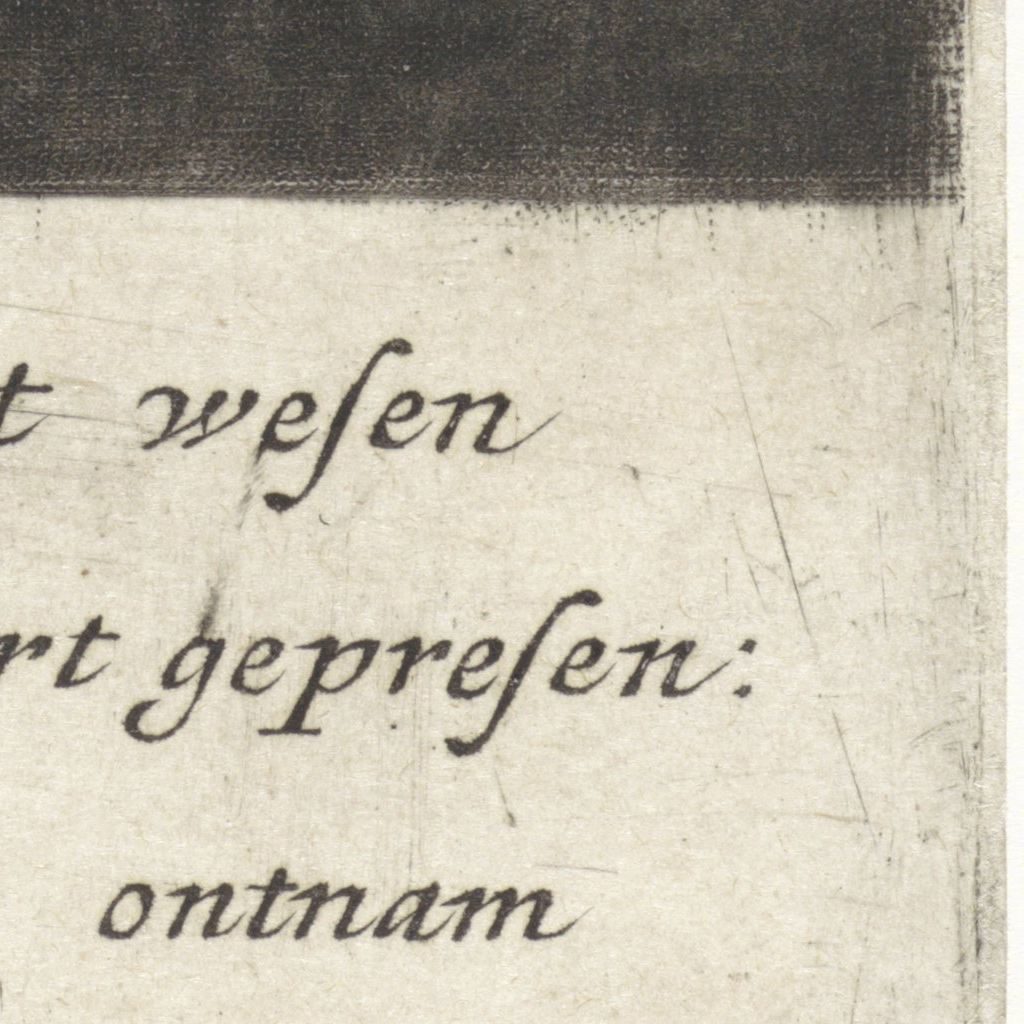 t weſen
rt gepreſen:
ontnam